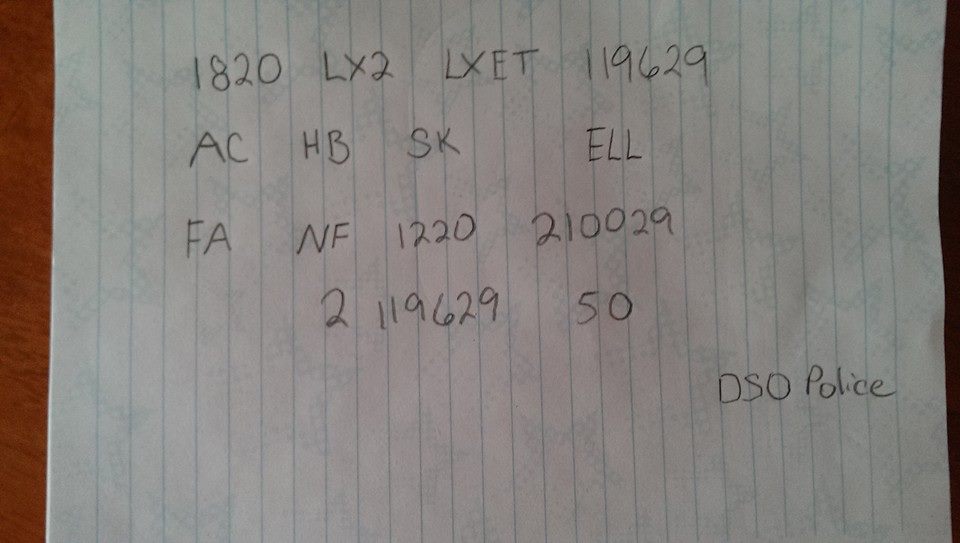 1820 LX2 LXET 119629
AC HB SK ELL
FA NF 1220 210029
2 119629 50
DSO Police